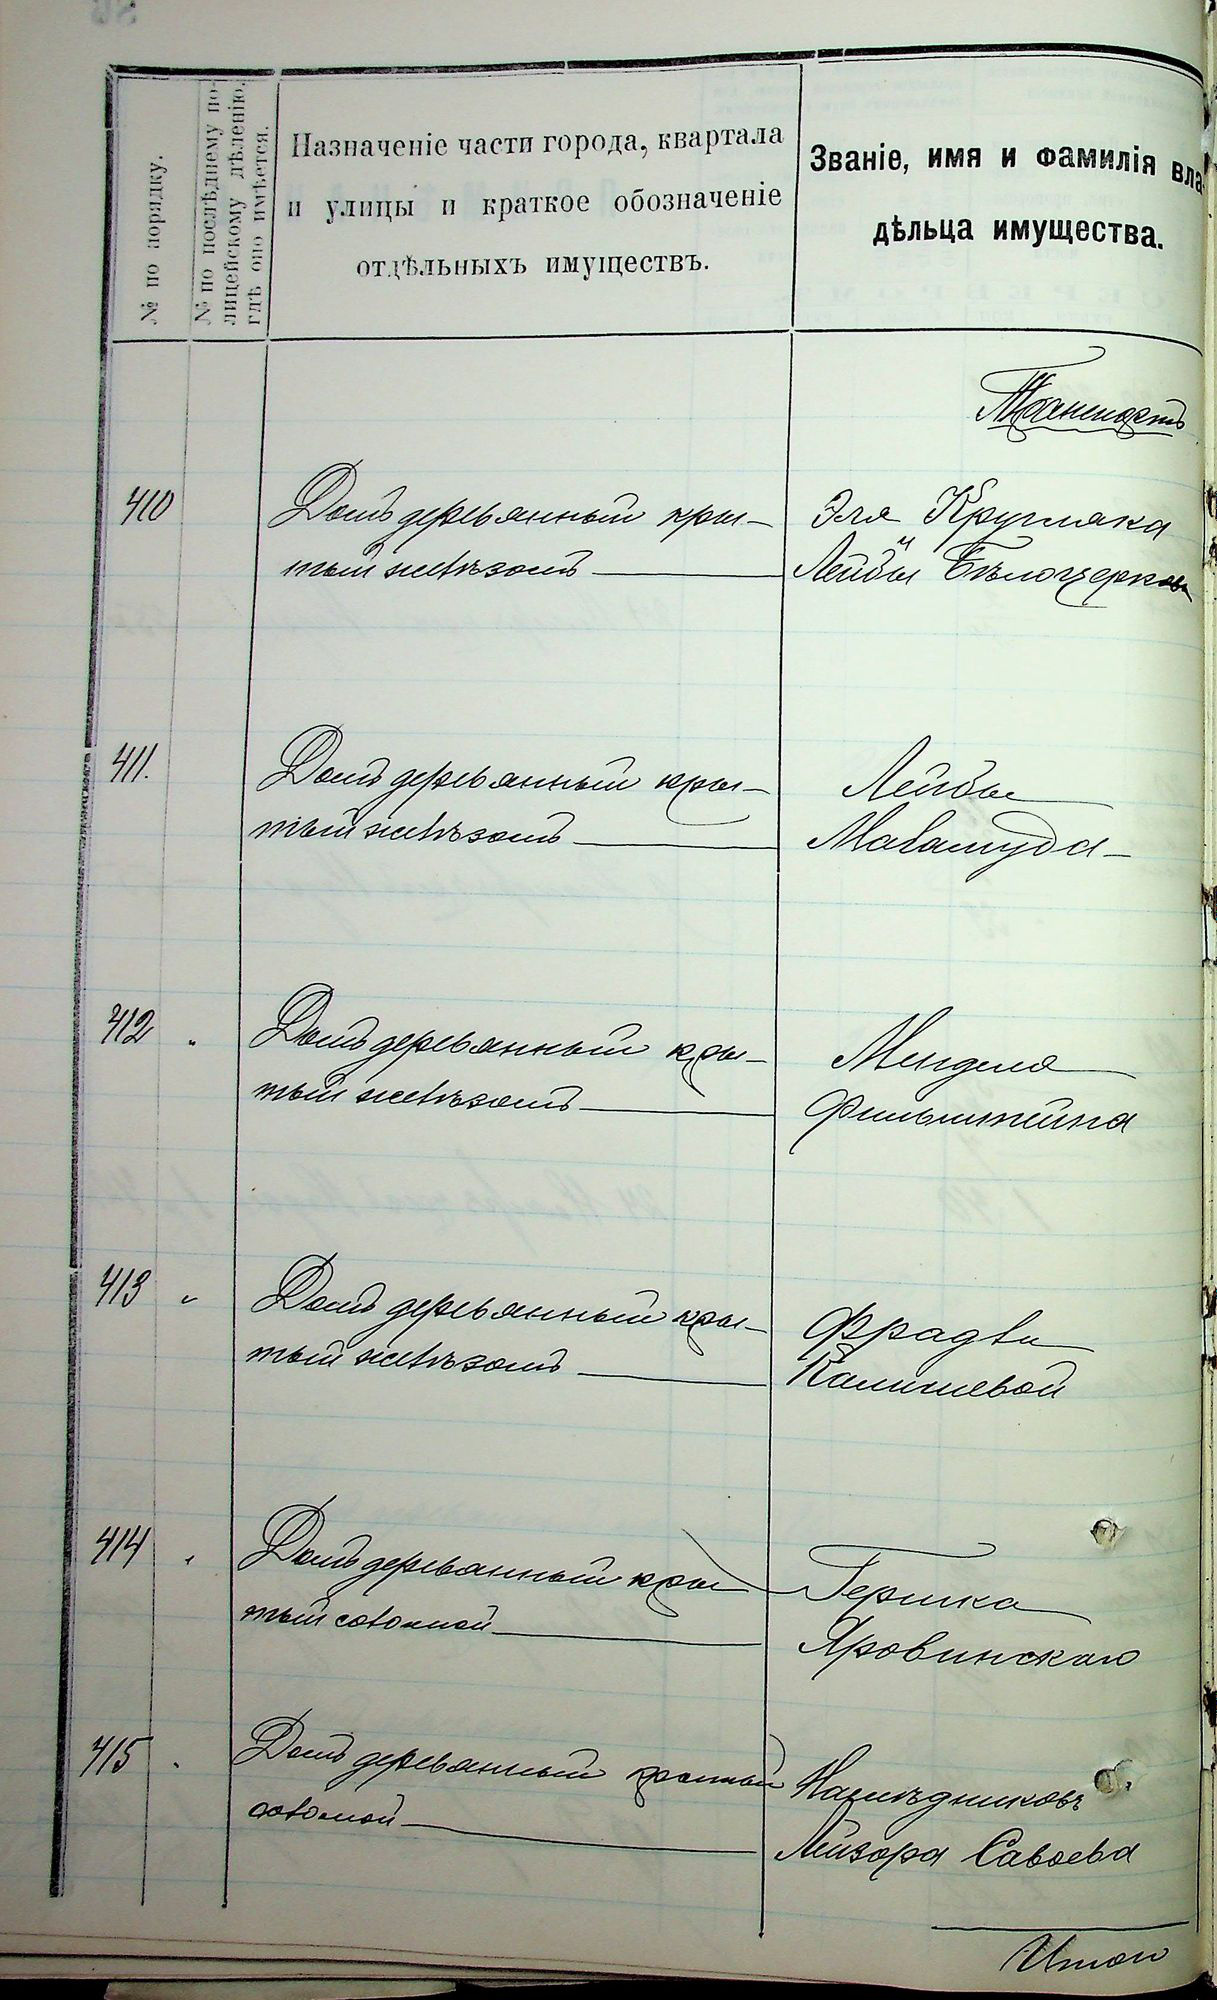 № по порядку.
№ по послѣднему по-
лицейскому дѣленію,
гдѣ оно имѣется.
Назначеніе части города, квартала
и улицы и краткое обозначеніе
отдѣльныхъ имуществъ.
Званіе, имя и фамилія вла-
дѣльца имущества.
Транспортъ
410 Домъ деревянный кры-
тый желѣзомъ
Эля Кругляка
и
Лейбы Бѣлоцерков
411. Домъ деревянный кры-
тый желѣзомъ
Лейбы
Маламуда
412 " Домъ деревянный кры-
тый желѣзомъ
Менделя
Финкельштейна
413 " Домъ деревянный кры-
тый желѣзомъ
Фрадли
Калишевой
414 " Домъ деревянный кры
тый соломой
Гершка
Яровинскаго
415 " Домъ деревянный крытый
соломой
Наслѣдниковъ
Лейзора Савоева
Итого